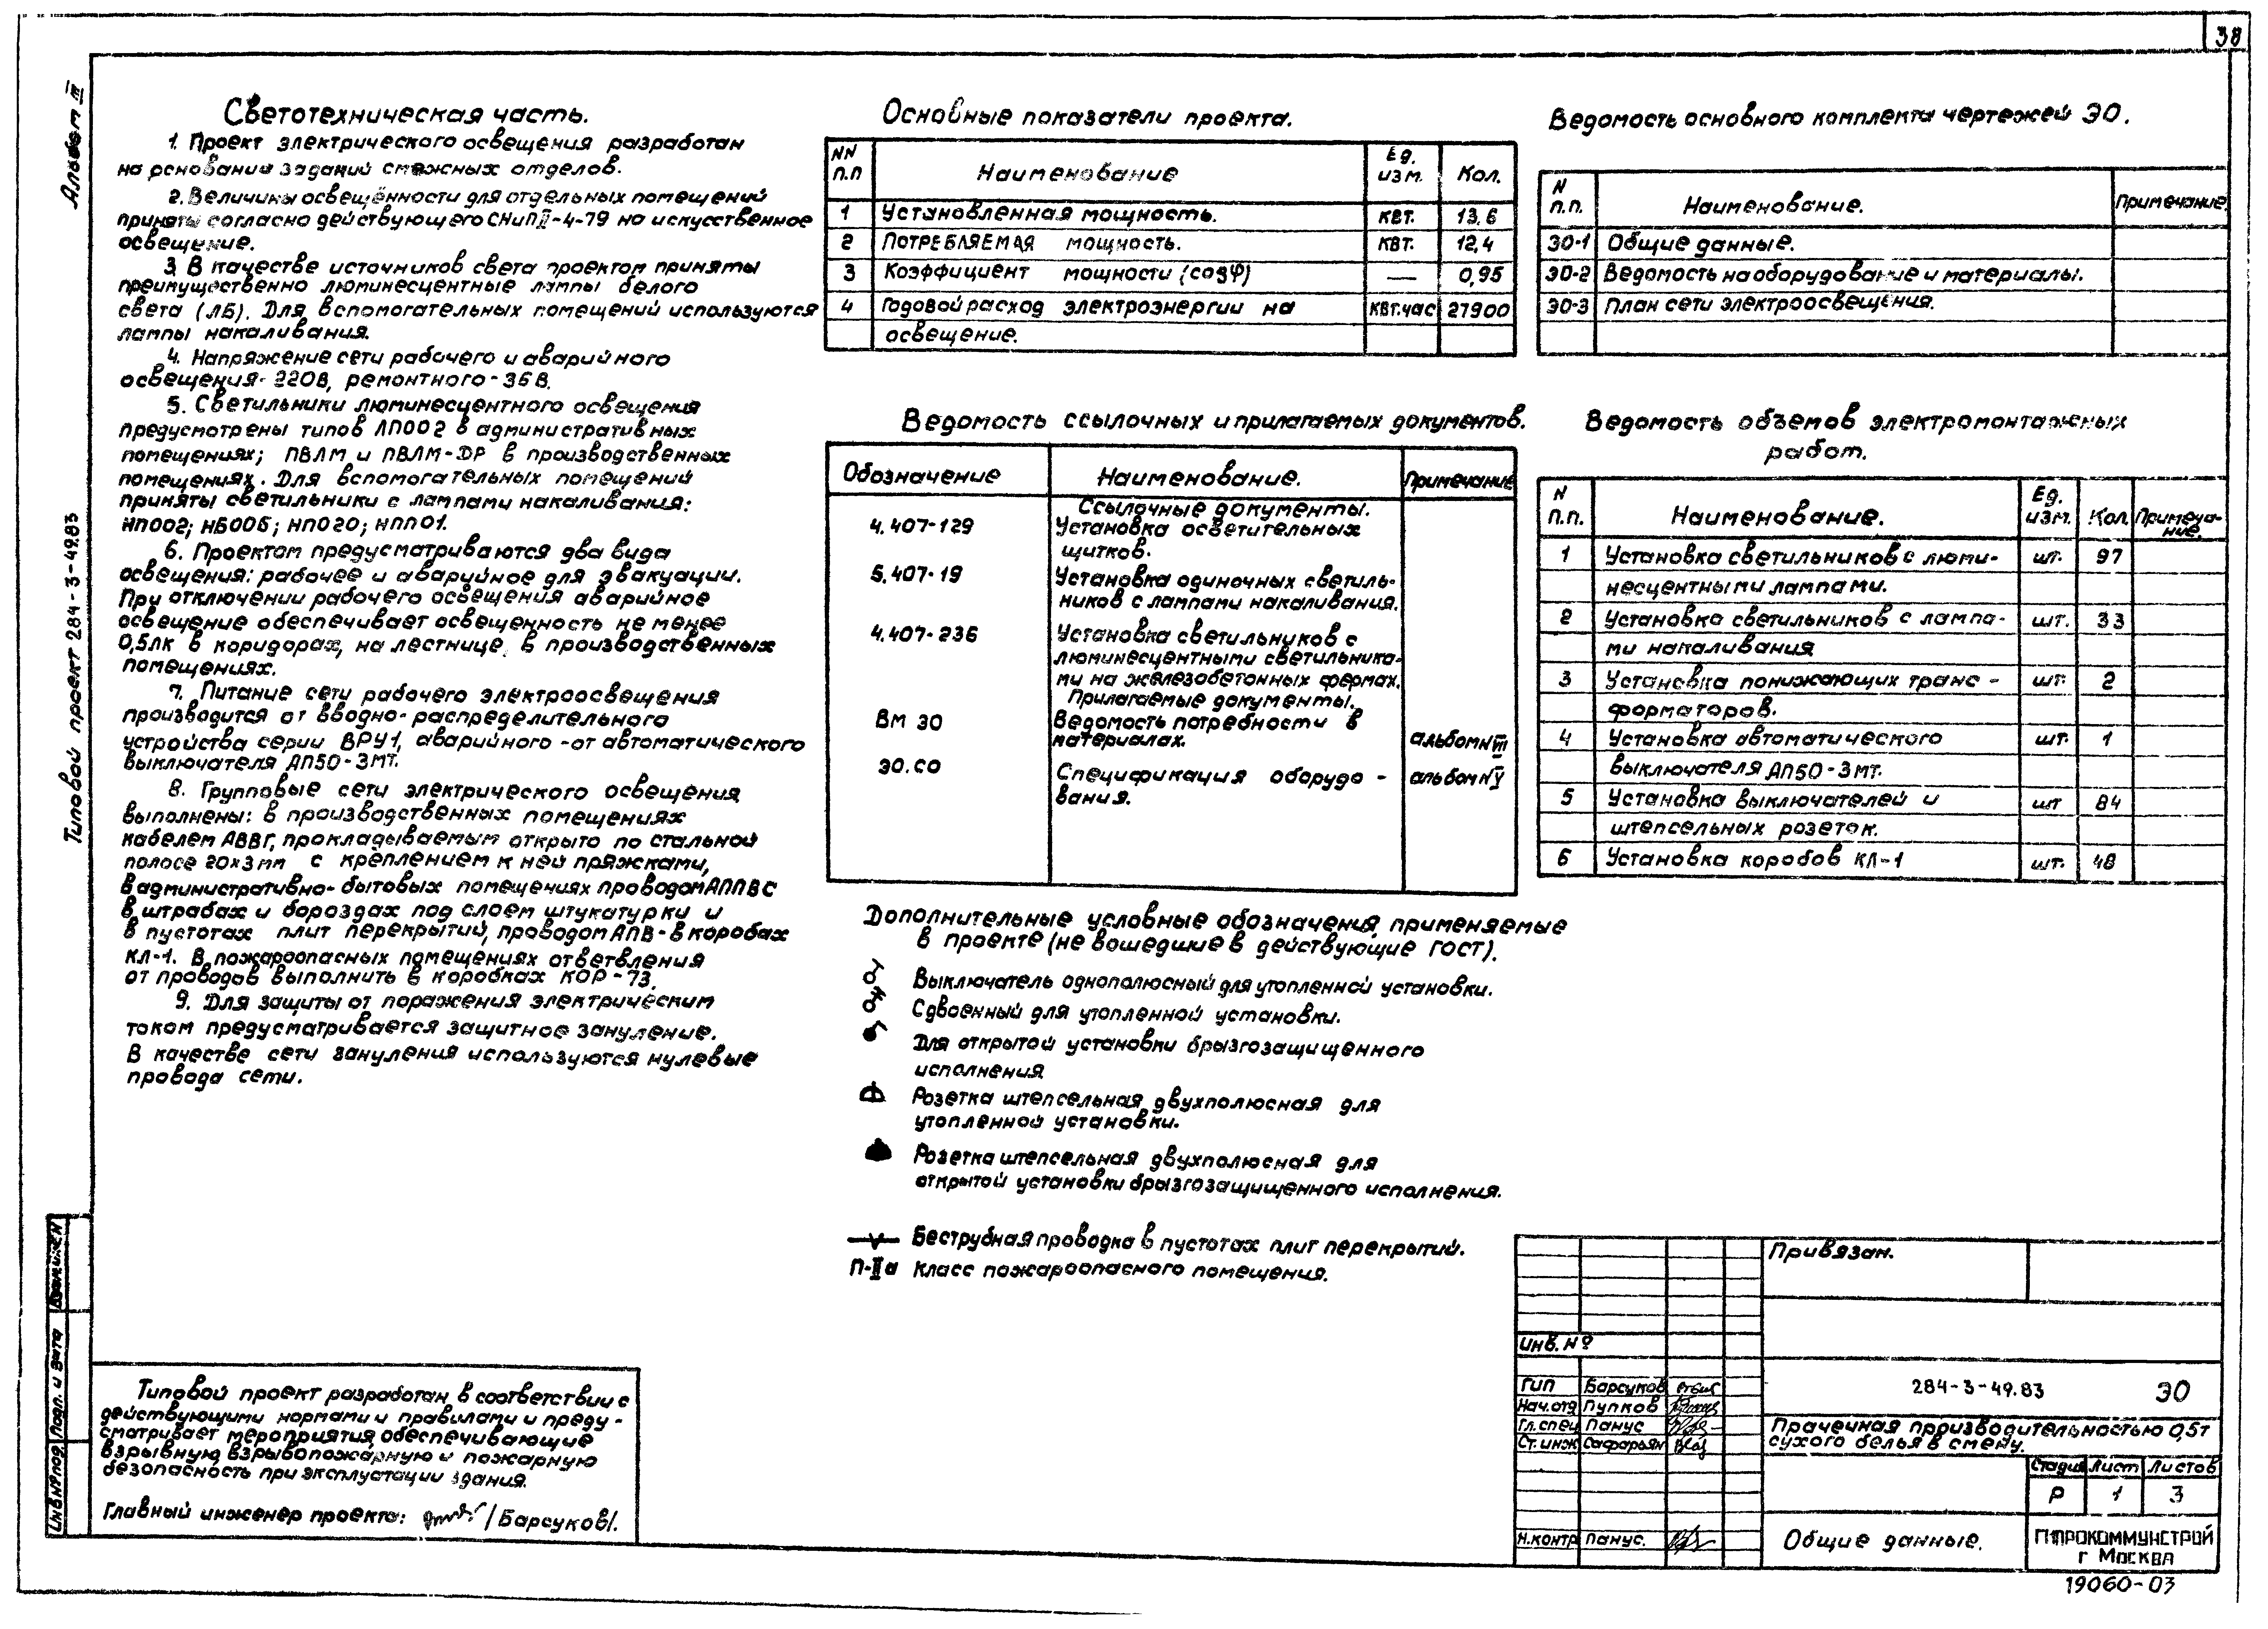 38
Альбом III
Типовой проект 284-3-49.83
Светотехническая часть.
1. Проект электрического освещения разработан
на основании заданий смежных отделов.
2. Величины освещённости для отдельных помещений
приняты согласно действующего СНиП II-4-79 на искусственное
освещение.
3. В качестве источников света проектом приняты
преимущественно люминесцентные лампы белого
света (ЛБ). Для вспомогательных помещений используются
лампы накаливания.
4. Напряжение сети рабочего и аварийного
освещения-220В, ремонтного-36В.
5. Светильники люминесцентного освещения
предусмотрены типов ЛП002 в административных
помещениях; ПВЛМ и ПВЛМ-ДР в производственных
помещениях. Для вспомогательных помещений
приняты светильники с лампами накаливания:
НП002; НБ006; НП020; НПП01.
6. Проектом предусматриваются два вида
освещения: рабочее и аварийное для эвакуации.
При отключении рабочего освещения аварийное
освещение обеспечивает освещенность не менее
0,5лк в коридорах, на лестнице, в производственных
помещениях.
7. Питание сети рабочего электроосвещения
производится от вводно-распределительного
устройства серии ВРУ1, аварийного -от автоматического
выключателя АП50-3МТ.
8. Групповые сети электрического освещения
выполнены: в производственных помещениях
кабелем АВВГ, прокладываемым открыто по стальной
полосе 20х3мм с креплением к ней пряжками,
в административно-бытовых помещениях проводом АППВС
в штрабах и бороздах под слоем штукатурки и
в пустотах плит перекрытий, проводом АПВ-в коробах
КЛ-1. В пожароопасных помещениях ответвления
от проводов выполнить в коробках КОР-73.
9. Для защиты от поражения электрическим
током предусматривается защитное зануление.
В качестве сети зануления используются нулевые
провода сети.
Типовой проект разработан в соответствии с
действующими нормами и правилами и преду-
сматривает мероприятия, обеспечивающие
взрывную, взрывопожарную и пожарную
безопасность при эксплуатации здания.
Главный инженер проекта: /Барсуков/.
Основные показатели проекта.
NN п.п Наименование Ед. изм. Кол.
1 Установленная мощность. квт. 13,6
2 Потребляемая мощность. квт. 12,4
3 Коэффициент мощности (cosφ) — 0,95
4 Годовой расход электроэнергии на квт.час 27900
освещение.
Ведомость ссылочных и прилагаемых документов.
Обозначение Наименование. Примечание
Ссылочные документы.
4.407-129 Установка осветительных
щитков.
5.407-19 Установка одиночных светиль-
ников с лампами накаливания.
4.407-236 Установка светильников с
люминесцентными светильника-
ми на железобетонных фермах.
Прилагаемые документы.
ВМ 30 Ведомость потребности в
материалах. альбомN VII
ЭО.СО Спецификация оборудо- альбомN V
вания.
Дополнительные условные обозначения, применяемые
в проекте (не вошедшие в действующие ГОСТ).
Выключатель однополюсный для утопленной установки.
Сдвоенный для утопленной установки.
Для открытой установки брызгозащищенного
исполнения
Розетка штепсельная двухполюсная для
утопленной установки.
Розетка штепсельная двухполюсная для
открытой установки брызгозащищенного исполнения.
Беструбная проводка в пустотах плит перекрытий.
П-IIа Класс пожароопасного помещения.
Ведомость основного комплекта чертежей ЭО.
N п.п. Наименование. Примечание
ЭО-1 Общие данные.
ЭО-2 Ведомость на оборудование и материалы.
ЭО-3 План сети электроосвещения.
Ведомость объемов электромонтажных
работ.
N п.п. Наименование. Ед. изм. Кол. Примеча-
ние.
1 Установка светильников с люми- шт. 97
несцентными лампами.
2 Установка светильников с лампа- шт. 33
ми накаливания
3 Установка понижающих транс- шт. 2
форматоров.
4 Установка автоматического шт. 1
выключателя АП50-3мт.
5 Установка выключателей и шт 84
штепсельных розеток.
6 Установка коробов КЛ-1 шт. 48
Привязан.
Инв. №
ГИП Барсуков
Нач.отд Пупков
Гл.спец Панус
Ст.инж Сафарьян
Н.контр Панус.
284-3-49.83 ЭО
Прачечная производительностью 0,5т
сухого белья в смену.
Стадия Лист Листов
Р 1 3
Общие данные.
ГИПРОКОММУНСТРОЙ
г Москва
19060-03
Инв№подл Подп. и дата Взам.инв.N